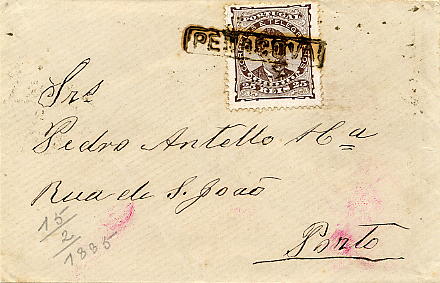 PORTUGAL
PENACOVA
CORREIOS E TELEGRAPHOS
25 REIS 25
Srs
Pedro Antello & Cª
Rua de S. João
Porto
15/2/1885